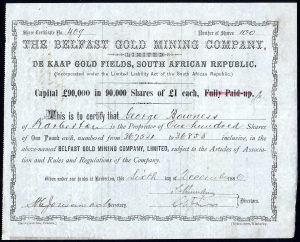 Share Certificate No. 409 Number of Shares 100
THE BELFAST GOLD MINING COMPANY,
LIMITED
DE KAAP GOLD FIELDS, SOUTH AFRICAN REPUBLIC.
(Incorporated under the Limited Liability Act of the South African Republic.)
Capital £90,000 in 90,000 Shares of £1 each, Fully Paid-up.
This is to certify that George Bowness
of is the Proprietor of One hundred Shares
of One Pound each, numbered from to inclusive, in the
above-named BELFAST GOLD MINING COMPANY, LIMITED, subject to the Articles of Associa-
tion and Rules and Regulations of the Company.
Given under our hands at Barberton, this Sixth day of
Secretary. Directors.